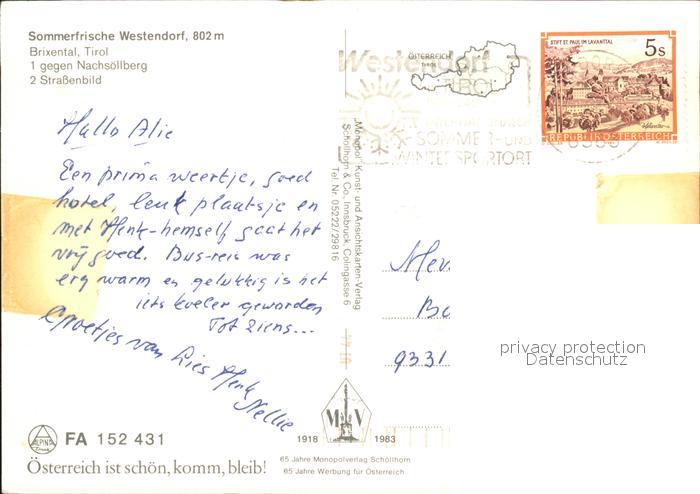 Sommerfrische Westendorf, 802 m
Brixental, Tirol
1 gegen Nachsöllberg
2 Straßenbild
Hallo Alie
Een prima weertje, goed
hotel, leuk plaatsje en
met Henk-hemself gaat het
vrij goed. Bus-reis was
erg warm en gelukkig is het
iets koeler geworden
Tot ziens...
Groetjes van Lies Henk
Nellie
FA 152 431
Österreich ist schön, komm, bleib!
"Monopol" Kunst- und Ansichtskarten-Verlag
Schöllhorn & Co., Innsbruck, Colingasse 6
Tel. Nr. 05222/29816
M V
1918 1983
65 Jahre Monopolverlag Schöllhorn
65 Jahre Werbung für Österreich
ÖSTERREICH
Westendorf
TIROL
SOMMER- UND
WINTERSPORTORT
STIFT ST. PAUL IM LAVANTTAL
5 s
REPUBLIK ÖSTERREICH
Mev.
9331
privacy protection
Datenschutz